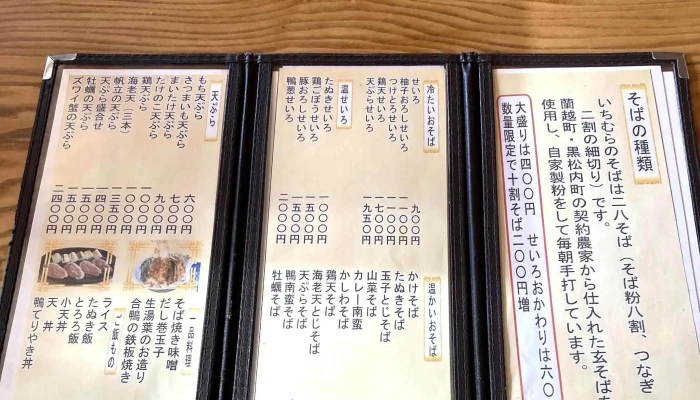 そばの種類
いちむらのそばは二八そば(そば粉八割、つなぎ
二割の細切り)です。
蘭越町・黒松内町の契約農家から仕入れた玄そばを
使用し、自家製粉をして毎朝手打しています。
大盛りは四〇〇円 せいろおかわりは六〇
数量限定で十割そば二〇〇円増
冷たいおそば
せいろ 九〇〇円
柚子おろしせいろ 一一〇〇円
つけとろせいろ 一一〇〇円
鶏天せいろ 一七〇〇円
天ぷらせいろ 一九五〇円
温せいろ
たぬきせいろ 一〇〇〇円
鶏ごぼうせいろ 一五〇〇円
豚おろしせいろ 一五〇〇円
鴨葱せいろ 二〇〇〇円
温かいおそば
かけそば
たぬきそば
玉子とじそば
山菜そば
カレー南蛮
かしわそば
鶏天そば
海老天とじそば
天ぷらそば
鴨南蛮そば
牡蠣そば
天ぷら
もち天ぷら 六〇〇円
さつまいも天ぷら 七〇〇円
まいたけ天ぷら 九〇〇円
たけのこ天ぷら 一〇〇〇円
鶏天ぷら 一〇〇〇円
海老天(三本) 一三五〇円
帆立の天ぷら 一四〇〇円
天ぷら盛合せ 一五〇〇円
牡蠣の天ぷら 一五〇〇円
ズワイ蟹の天ぷら 二四〇〇円
一品料理
そば焼き味噌
だし巻玉子
生湯葉のお造り
合鴨の鉄板焼き
ご飯もの
ライス
たぬき飯
とろろ飯
小天丼
天丼
鴨てりやき丼